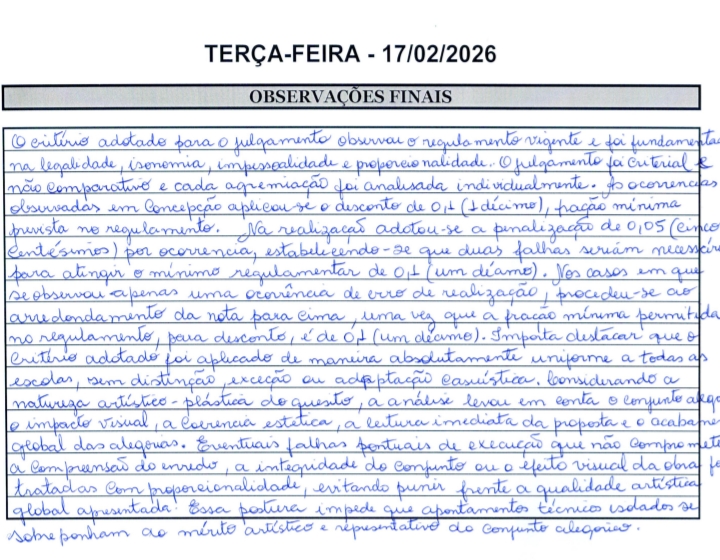 TERÇA-FEIRA - 17/02/2026
OBSERVAÇÕES FINAIS
O critério adotado para o julgamento observou o regulamento vigente e foi fundamenta
na legalidade, isonomia, impessoalidade e proporcionalidade. O julgamento foi criterial e
não comparativo e cada agremiação foi analisada individualmente. Às ocorrências
observadas em Concepção aplicou-se o desconto de 0,1 (1 décimo), fração mínima
prevista no regulamento. Na realização adotou-se a penalização de 0,05 (cinco
centésimos) por ocorrência, estabelecendo-se que duas falhas seriam necessári
para atingir o mínimo regulamentar de 0,1 (um décimo). Nos casos em que
se observou apenas uma ocorrência de erro de realização, procedeu-se ao
arredondamento da nota para cima, uma vez que a fração mínima permitida
no regulamento, para desconto, é de 0,1 (um décimo). Importa destacar que o
critério adotado foi aplicado de maneira absolutamente uniforme a todas as
escolas, sem distinção, exceção ou adaptação casuística. Considerando a
natureza artístico-plástica do quesito, a análise levou em conta o conjunto alegó
o impacto visual, a coerência estética, a leitura imediata da proposta e o acabame
global das alegorias. Eventuais falhas pontuais de execução que não compromete
a compreensão do enredo, a integridade do conjunto ou o efeito visual da obra fo
tratadas com proporcionalidade, evitando punir frente a qualidade artística
global apresentada. Essa postura impede que apontamentos técnicos isolados se
sobreponham ao mérito artístico e representativo do conjunto alegórico.